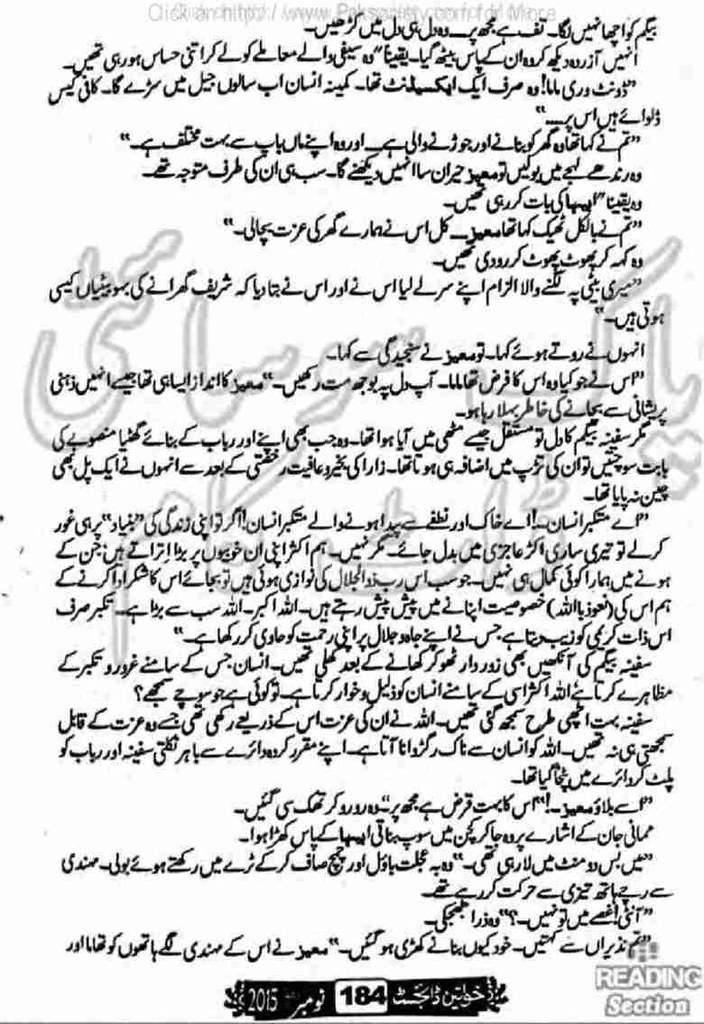 Click on http://www.Paksociety.com for More
بیگم کو اچھا نہیں لگا۔ تف ہے مجھ پر۔۔ وہ دل ہی دل میں کڑھیں۔
انہیں آزردہ دیکھ کر وہ ان کے پاس بیٹھ گیا۔ یقینا" وہ سیفی والے معاملے کو لے کر اتنی حساس ہو رہی تھیں۔
"ڈونٹ وری ماما! وہ صرف ایک ایکسیڈنٹ تھا۔ کمینہ انسان اب سالوں جیل میں سڑے گا۔ کافی کیس
ڈلوائے ہیں اس پر۔۔"
"تم نے کہا تھا وہ گھر کو بنانے اور جوڑنے والی ہے۔۔ اور وہ اپنے ماں باپ سے بہت مختلف ہے۔"
وہ رندھے لہجے میں بولیں تو معیز حیران سا انہیں دیکھنے لگا۔ سب ہی ان کی طرف متوجہ تھے۔
وہ یقینا" ایبہا کی بات کر رہی تھیں۔
"تم نے بالکل ٹھیک کہا تھا معیز۔۔ کل اس نے ہمارے گھر کی عزت بچالی۔"
وہ کہہ کر پھوٹ پھوٹ کر رو دی تھیں۔
"میری بیٹی پہ لگنے والا الزام اپنے سر لے لیا اس نے اور اس نے بتا دیا کہ شریف گھرانے کی بہو بیٹیاں کیسی
ہوتی ہیں۔"
انہوں نے روتے ہوئے کہا۔ تو معیز نے سنجیدگی سے کہا۔
"اس نے جو کیا وہ اس کا فرض تھا ماما۔ آپ دل پہ بوجھ مت رکھیں۔" معیز کا انداز ایسا ہی تھا جیسے انہیں ذہنی
پریشانی سے بچانے کی خاطر بہلا رہا ہو۔
مگر سفینہ بیگم کا دل تو مستقل جیسے مٹھی میں آیا ہوا تھا۔ وہ جب بھی اپنے اور رباب کے بنائے گھٹیا منصوبے کی
بابت سوچتیں تو ان کی تڑپ میں اضافہ ہی ہوتا تھا۔ زارا کی بخیر و عافیت رخصتی کے بعد سے انہوں نے ایک پل بھی
چین نہ پایا تھا۔
"اے متکبر انسان۔! اے خاک اور نطفے سے پیدا ہونے والے متکبر انسان! اگر تو اپنی زندگی کی "بنیاد" پر ہی غور
کرلے تو تیری ساری اکڑ عاجزی میں بدل جائے۔ مگر نہیں۔ ہم اکثر اپنی ان خوبیوں پر بڑا اتراتے ہیں؛ جن کے
ہونے میں ہمارا کوئی کمال ہی نہیں۔ جو سب اس رب ذوالجلال کی نوازی ہوئی ہیں تو بجائے اس کا شکر ادا کرنے کے
ہم اس کی (نعوذ باللہ) خصوصیت اپنانے میں پیش پیش رہتے ہیں۔ اللہ اکبر۔ اللہ سب سے بڑا ہے۔ تکبر صرف
اس ذات کریمی کو زیب دیتا ہے جس نے اپنے جاہ و جلال پر اپنی رحمت کو حاوی کر رکھا ہے۔"
سفینہ بیگم کی آنکھیں بھی زوردار ٹھوکر کھانے کے بعد کھلی تھیں۔ انسان جس کے سامنے غرور و تکبر کے
مظاہرے کرتا ہے اللہ اکثر اسی کے سامنے انسان کو ذلیل و خوار کرتا ہے۔ تو کوئی ہے جو سوچے سمجھے؟
سفینہ بہت اچھی طرح سمجھ گئی تھیں۔ اللہ نے ان کی عزت اس کے ذریعے رکھی تھی جسے وہ عزت کے قابل
سمجھتی ہی نہ تھیں۔ اللہ کو انسان سے ناک رگڑوانا آتا ہے۔ اپنے مقرر کردہ دائرے سے باہر نکلتی سفینہ اور رباب کو
پلٹ کر دائرے میں پٹخا گیا تھا۔
"اسے بلاؤ معیز۔!" اس کا بہت قرض ہے مجھ پر" وہ رو رو کر تھک سی گئیں۔
ممانی جان کے اشارے پر وہ جا کر کچن میں سوپ بناتی ایبہا کے پاس کھڑا ہوا۔
"میں بس دو منٹ میں لا رہی تھی۔" وہ بہ عجلت باؤل اور چمچ صاف کر کے ٹرے میں رکھتے ہوئے بولی۔ مہندی
سے رچے ہاتھ تیزی سے حرکت کر رہے تھے۔
"آنٹی غصے میں تو نہیں۔؟" وہ ذرا جھجکی۔
"تم نذیراں سے کہتیں۔ خود کیوں بنانے کھڑی ہو گئیں۔" معیز نے اس کے مہندی لگے ہاتھوں کو تھاما اور
خواتین ڈائجسٹ 184 نومبر 2015
READING
Section
پاک سوسائٹی
ڈاٹ کام